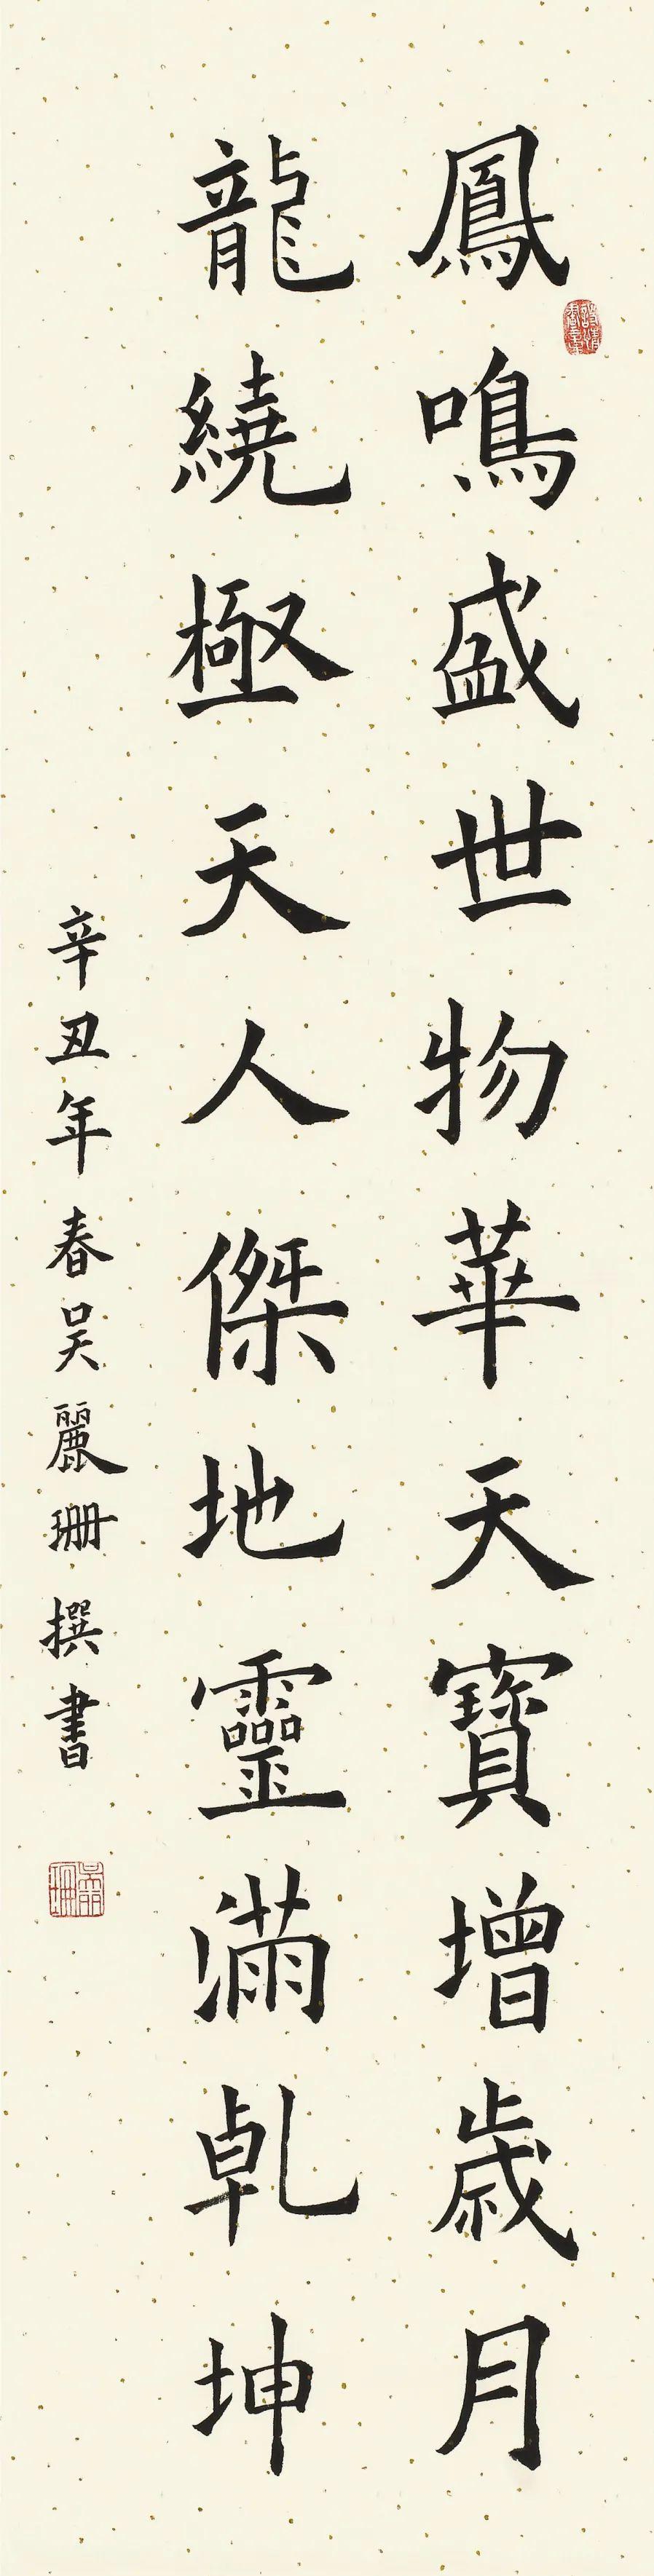 鳳鳴盛世物華天寶增歲月
龍繞極天人傑地靈滿乹坤
辛丑年春吴麗珊撰書